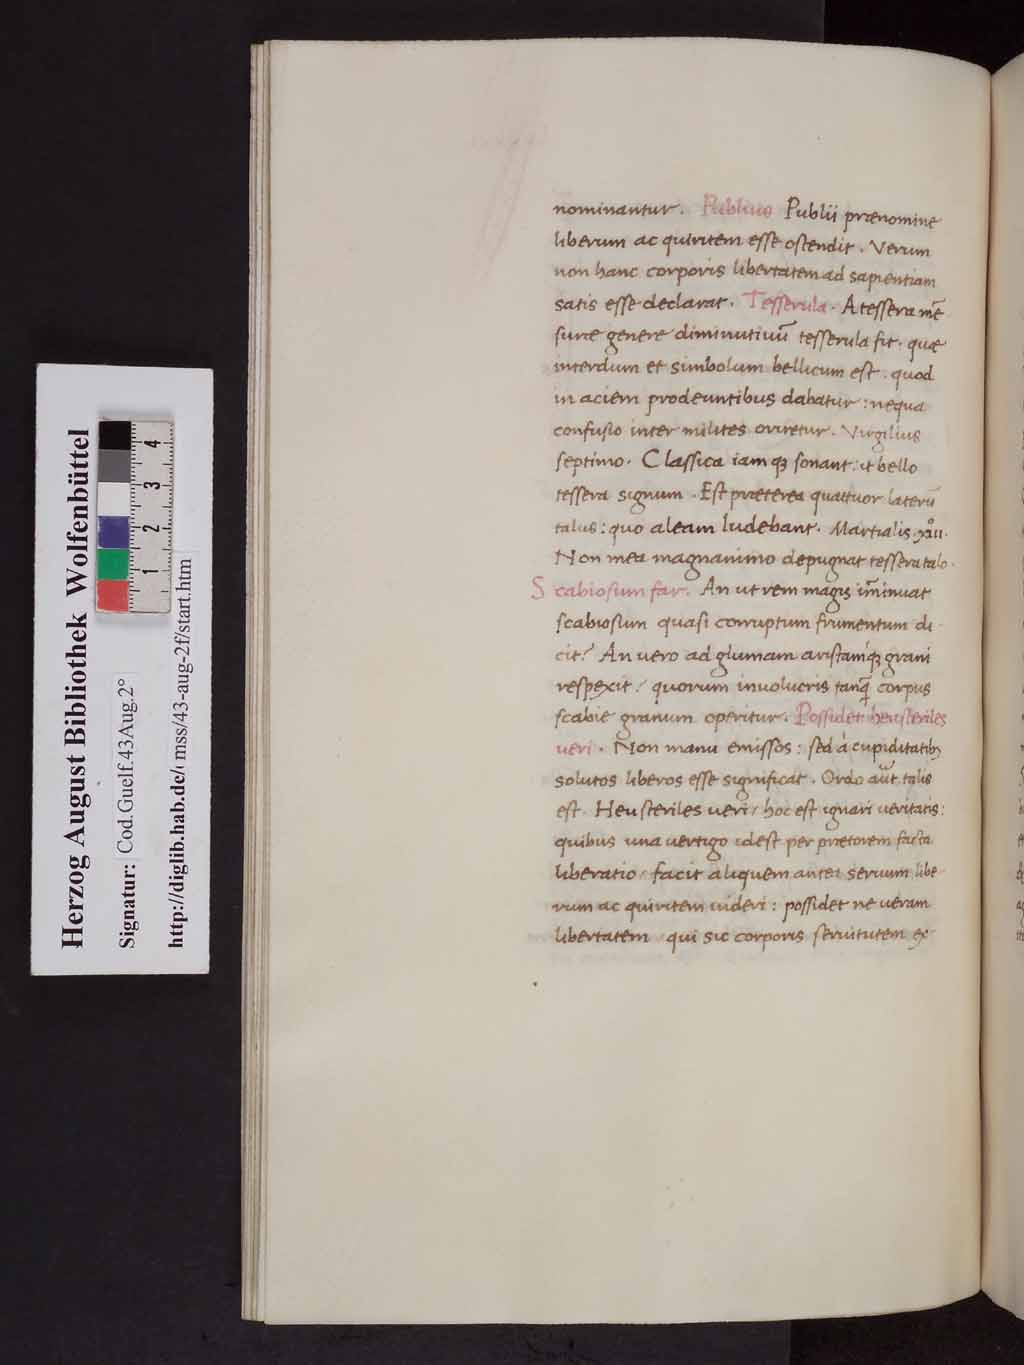 nominantur. Publius Publii prænomine
liberum ac quiritem esse ostendit. Verum
non hanc corporis libertatem ad sapientiam
satis esse declarat. Tesserula. A tessera mē
suræ genere diminutiuū tesserula fit. quæ
interdum et simbolum bellicum est. quod
in aciem prodeuntibus dabatur: nequa
confusio inter milites oriretur. Virgilius
septimo. Classica iamqꝫ sonant: it bello
tessera signum. Est præterea quattuor laterū
talus: quo aleam ludebant. Martialis
Non mea magnanimo depugnat tessera talo.
Scabiosum far. An ut rem magis im̄inuat
scabiosum quasi corruptum frumentum di
cit? An uero ad glumam aristamqꝫ grani
respexit? quorum inuolucris tanq̄ corpus
scabie granum operitur. Possidet heu steriles
ueri. Non manu emissos: sed à cupiditatibꝫ
solutos liberos esse significat. Ordo aūt talis
est. Heu steriles ueri/ hoc est ignari ueritatis:
quibus una uertigo idest per prætorem facta
liberatio/ facit aliquem antea seruum libe
rum ac quiritem uideri: possidet ne ueram
libertatem/ qui sic corporis seruitutem ex
Herzog August Bibliothek Wolfenbüttel
Signatur: Cod.Guelf.43Aug.2°
http://diglib.hab.de/ mss/43-aug-2f/start.htm
1 2 3 4